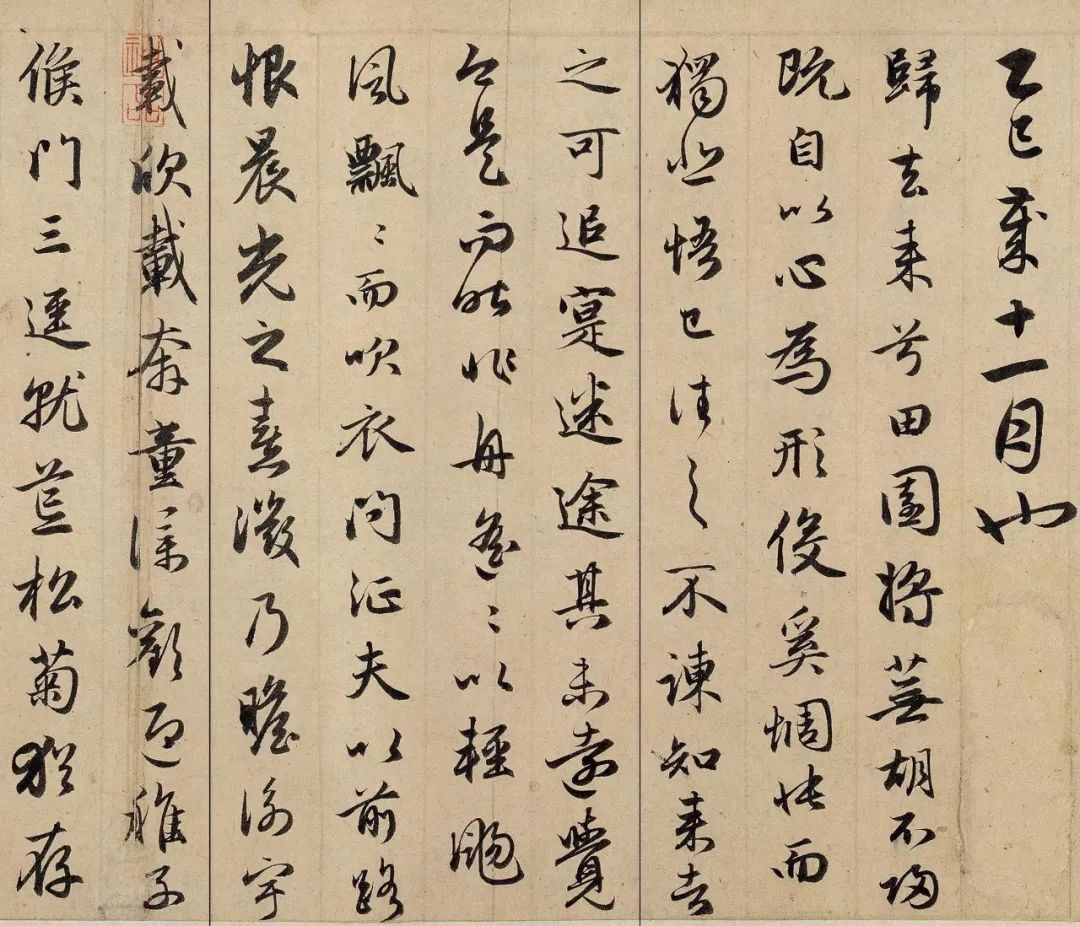 乙巳歲十一月也
歸去来兮田園将蕪胡不歸
既自以心為形役奚惆悵而
獨悲悟已往之不諫知来者
之可追寔迷途其未遠覺
今是而昨非舟遥〻以輕颺
風飄〻而吹衣問征夫以前路
恨晨光之熹微乃瞻衡宇
載欣載奔童僕歡迎稚子
候門三逕就荒松菊猶存